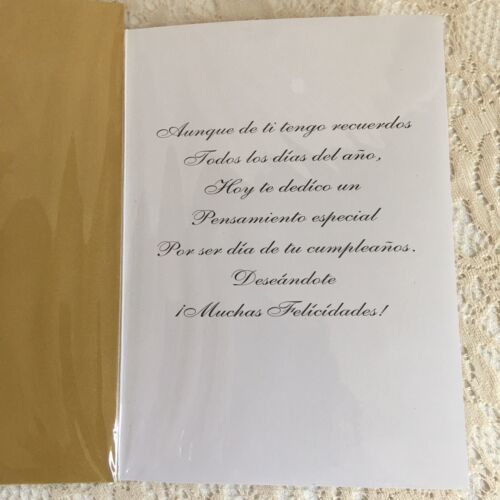 Aunque de ti tengo recuerdos
Todos los días del año,
Hoy te dedíco un
Pensamiento especial
Por ser día de tu cumpleaños.
Deseándote
¡Muchas Felícídades!